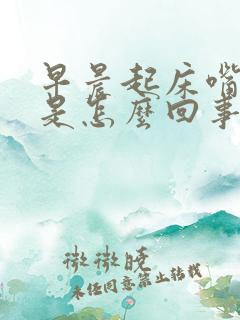 早晨起床嘴
是怎麼回事
微微晓
未经同意禁止转载